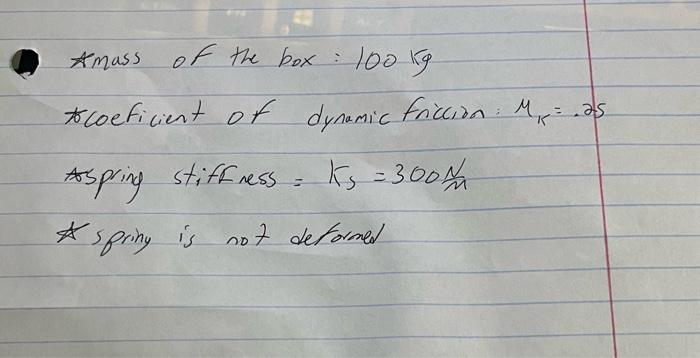 *mass of the box : 100 kg
*coeficient of dynamic friccion : Mk = .25
*spring stiffness = ks = 300 N/m
* spring is not deformed